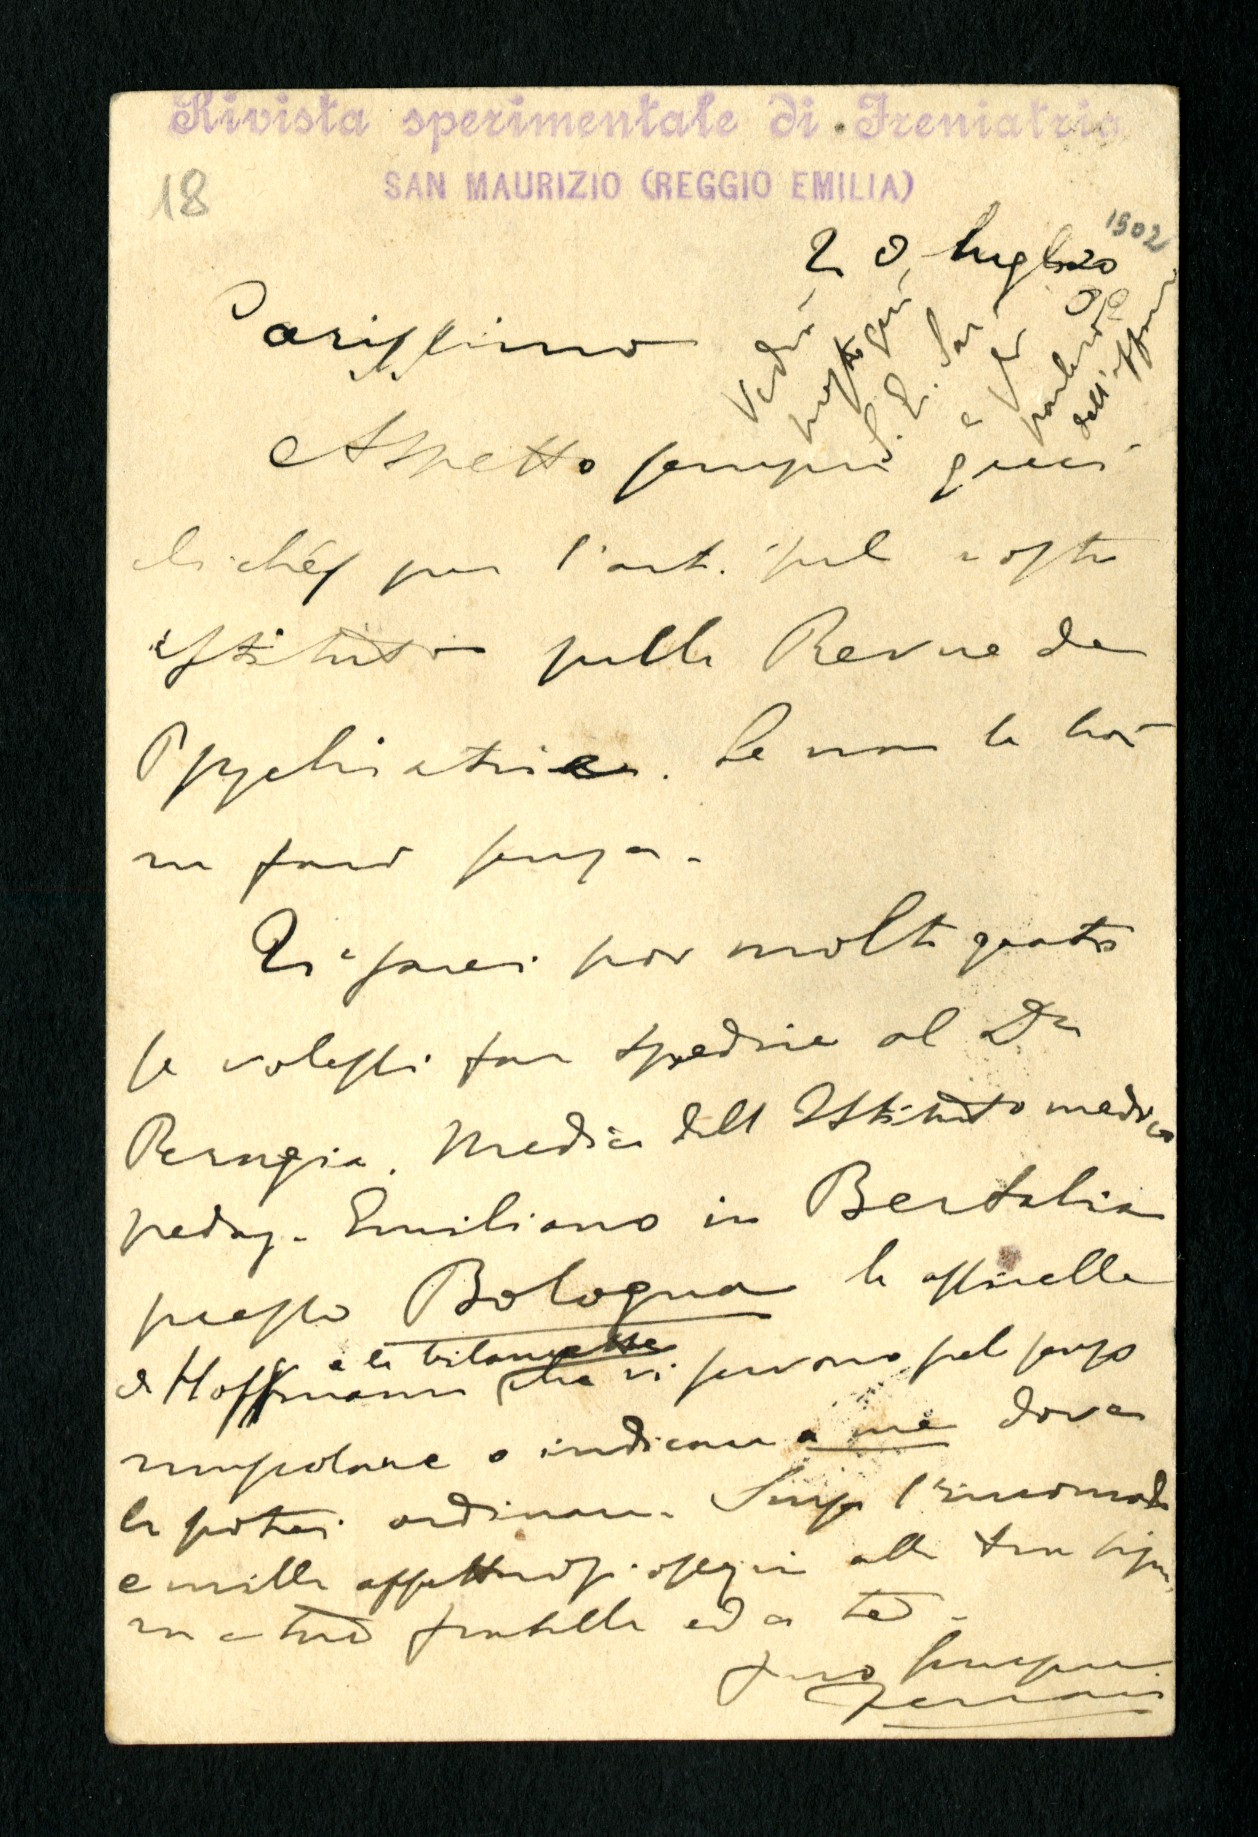 Rivista sperimentale di Freniatria
SAN MAURIZIO (REGGIO EMILIA)
18
1902
20 luglio
02
Carissimo
Vedrò
presto qui
S. E.
e
parlerò
dell'affare
Aspetto sempre quei
clichés per l'art. sul vostro
istituto sulla Revue de
Psychiatrie. Se non li hai
ne farò senza.
Ti sarei poi molto grato
se volessi far spedire al Dr
Perugia. Medico dell'Istituto medico
pedag. Emiliano in Bertalia
presso Bologna le assicelle
e le bilancette
di Hoffmann che vi servono pel senso
muscolare o indicare a me dove
le potrei ordinare. Scusa l'incomodo
e mille affettuosi ossequi alla tua signo
ra a tuo fratello ed a te.
tuo sempre
Ferrari